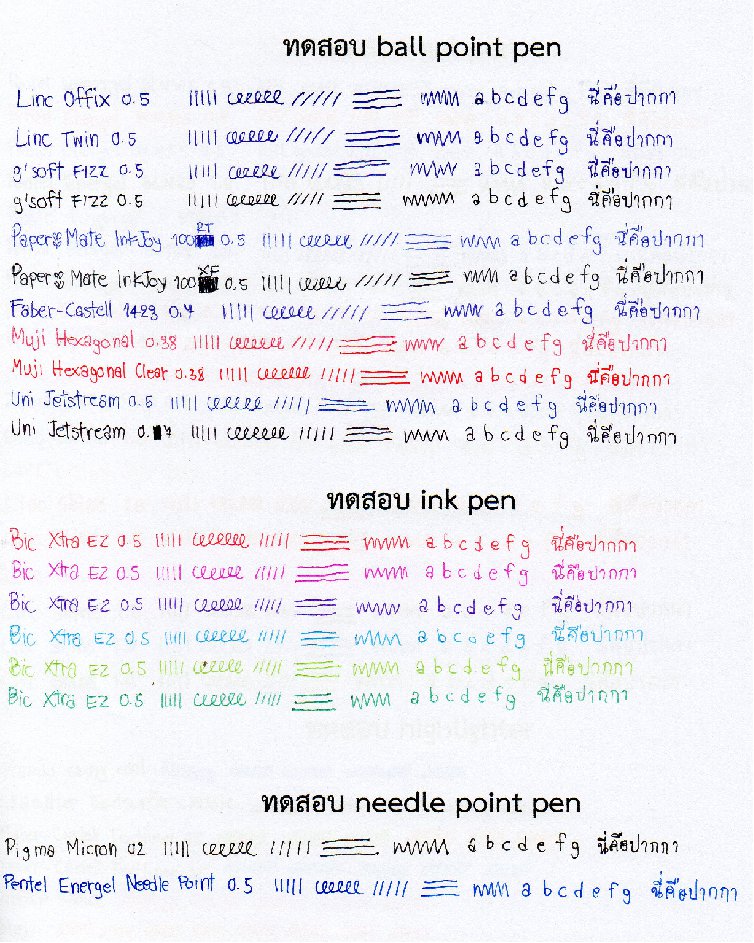 ทดสอบ ball point pen
Linc Offix 0.5 a b c d e f g นี่คือปากกา
Linc Twin 0.5 a b c d e f g นี่คือปากกา
g'soft FIZZ 0.5 a b c d e f g นี่คือปากกา
g'soft FIZZ 0.5 a b c d e f g นี่คือปากกา
Paper Mate InkJoy 100 RT 0.5 a b c d e f g นี่คือปากกา
Paper Mate inkJoy 100 XF 0.5 a b c d e f g นี่คือปากกา
Faber-Castell 1423 0.7 a b c d e f g นี่คือปากกา
Muji Hexagonal 0.38 a b c d e f g นี่คือปากกา
Muji Hexagonal Clear 0.38 a b c d e f g นี่คือปากกา
Uni Jetstream 0.5 a b c d e f g นี่คือปากกา
Uni Jetstream 0.7 a b c d e f g นี่คือปากกา
ทดสอบ ink pen
Bic Xtra EZ 0.5 a b c d e f g นี่คือปากกา
Bic Xtra EZ 0.5 a b c d e f g นี่คือปากกา
Bic Xtra EZ 0.5 a b c d e f g นี่คือปากกา
Bic Xtra EZ 0.5 a b c d e f g นี่คือปากกา
Bic Xtra EZ 0.5 a b c d e f g นี่คือปากกา
Bic Xtra EZ 0.5 a b c d e f g นี่คือปากกา
ทดสอบ needle point pen
Pigma Micron 02 a b c d e f g นี่คือปากกา
Pentel Energel Needle Point 0.5 a b c d e f g นี่คือปากกา